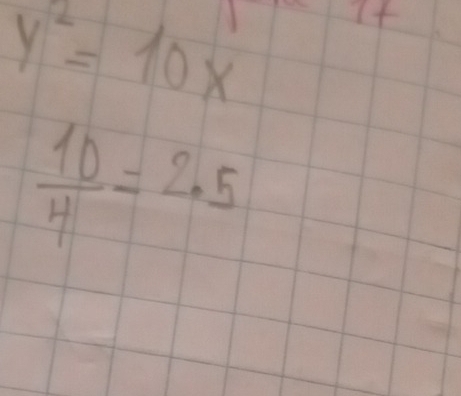 y² = 10x
10/4 = 2.5